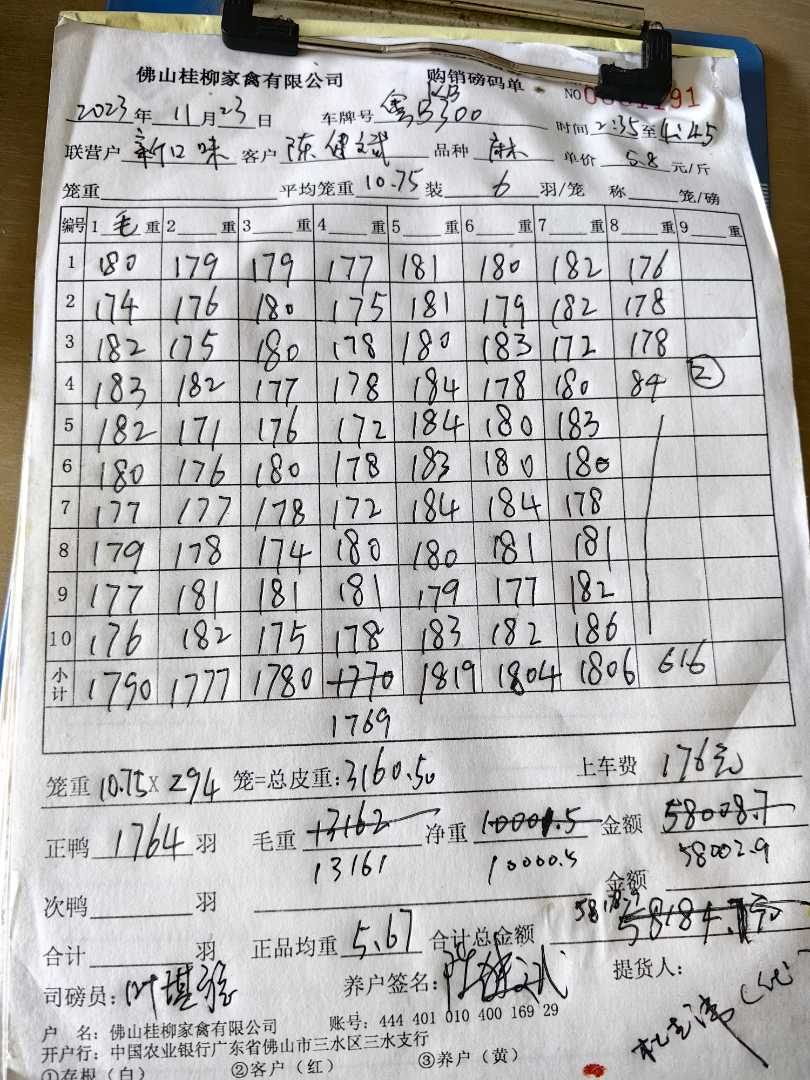 佛山桂柳家禽有限公司 购销磅码单 NO
2023年 11月23日 车牌号 5300 时间2:35至4:45
联营户 新口味 客户 陈健斌 品种 麻 单价 5.8 元/斤
笼重 平均笼重 10.75 装 6 羽/笼 称 笼/磅
编号 1 毛 重 2 重 3 重 4 重 5 重 6 重 7 重 8 重 9 重
1 180 179 179 177 181 180 182 176
2 174 176 180 175 181 179 182 178
3 182 175 180 178 180 183 172 178
4 183 182 177 178 184 178 180 84 ②
5 182 171 176 172 184 180 183
6 180 176 180 178 183 180 180
7 177 177 178 172 184 184 178
8 179 178 174 180 180 181 181
9 177 181 181 181 179 177 182
10 176 182 175 178 183 182 186
小计 1790 1777 1780 1770 1819 1804 1806 616
1769
笼重 10.75 X 294 笼=总皮重:3160.50 上车费 176元
正鸭 1764 羽 毛重 13162 净重 10001.5 金额 58008.7
13161 10000.5 58002.9
次鸭 羽 金额
合计 羽 正品均重 5.67 合计总金额
司磅员: 养户签名: 陈健斌 提货人:
户 名: 佛山桂柳家禽有限公司 账号: 444 401 010 400 169 29
开户行: 中国农业银行广东省佛山市三水区三水支行
①存根(白) ②客户(红) ③养户(黄)